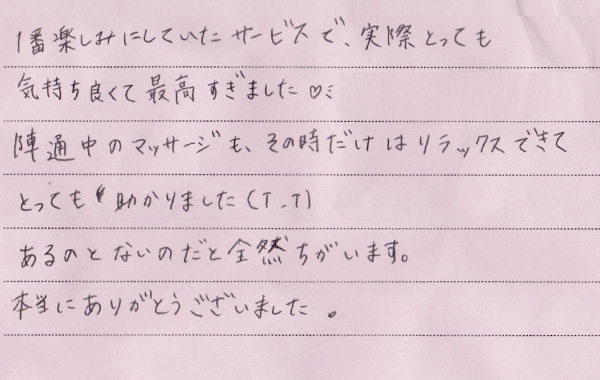 1番楽しみにしていたサービスで、実際とっても
気持ち良くて最高すぎました♡
陣通中のマッサージも、その時だけはリラックスできて
とっても助かりました(T.T)
あるのとないのだと全然ちがいます。
本当にありがとうございました。